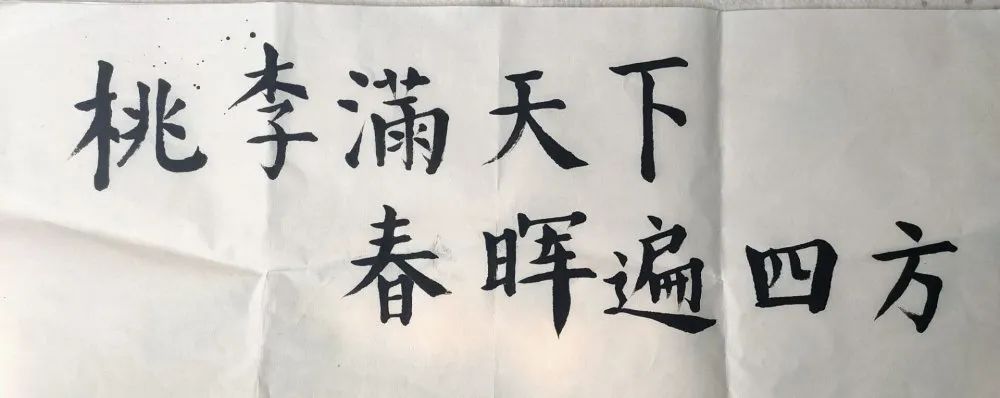 桃李满天下
春晖遍四方